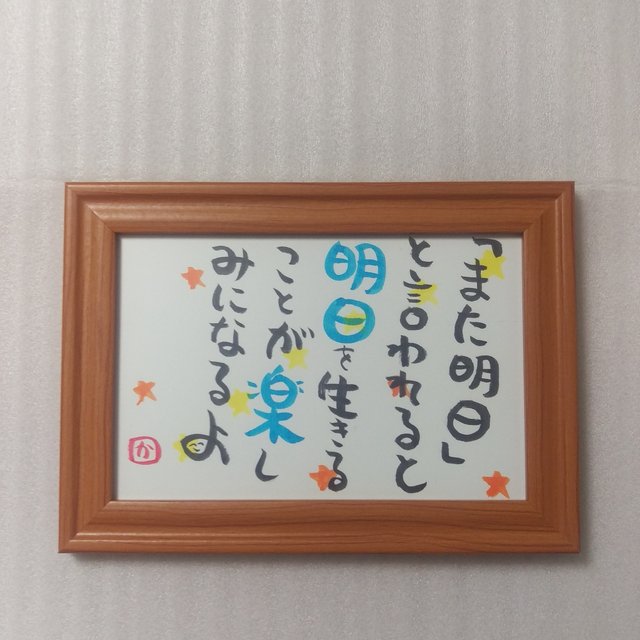 「また明日」
と言われると
明日を生きる
ことが楽し
みになるよ
か